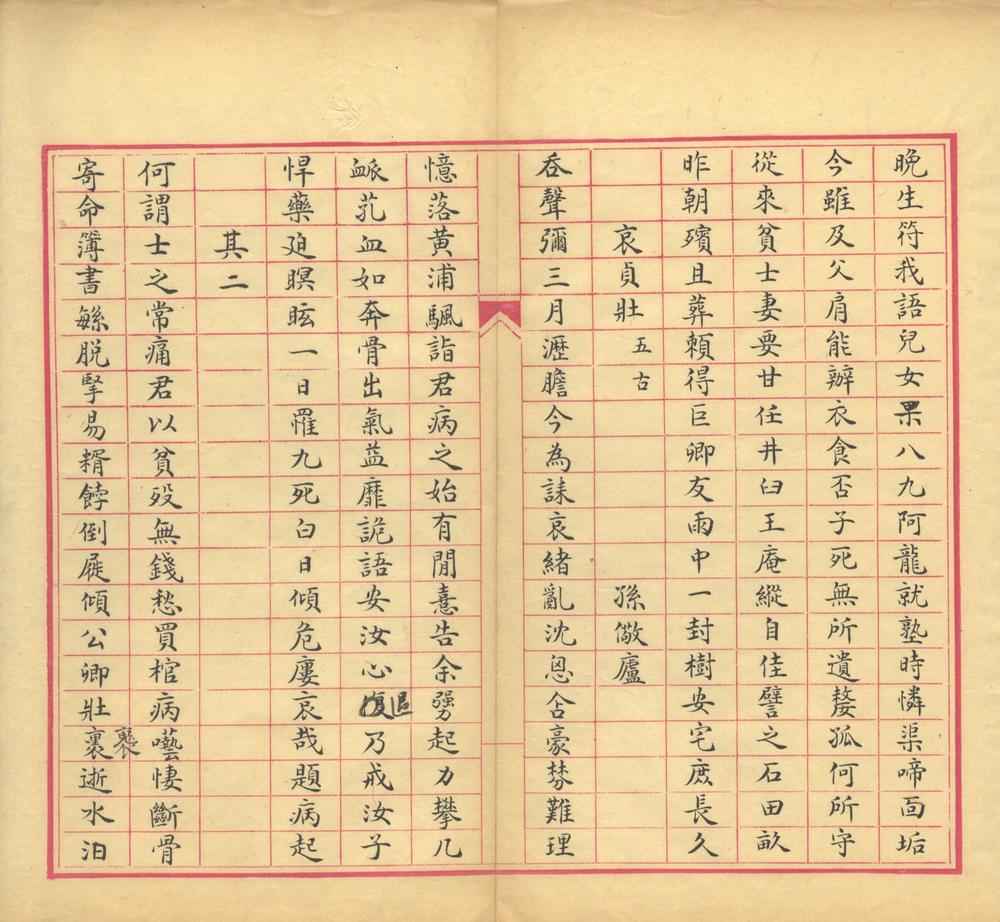 晚生符我語兒女果八九阿龍就塾時憐渠啼面垢
今雖及父肩能辦衣食否子死無所遺嫠孤何所守
從來貧士妻要甘任井臼王庵縱自佳譬之石田畝
昨朝殯且葬賴得巨卿友雨中一封樹安宅庶長久
哀貞壯 五古 孫儆廬
吞聲彌三月瀝膽今為誄哀緒亂沈恩含豪棼難理
憶落黃浦颿詣君病之始有閒憙告余勥起力攀几
衇芤血如奔骨出氣益靡詭語安汝心 乃戒汝子
悍藥廹瞑眩一日罹九死白日傾危廔哀哉題病起
其二
何謂士之常痛君以貧歿無錢愁買棺病囈悽斷骨
寄命簿書緐脫擥易糈餑倒屣傾公卿壯裹褱逝水汩